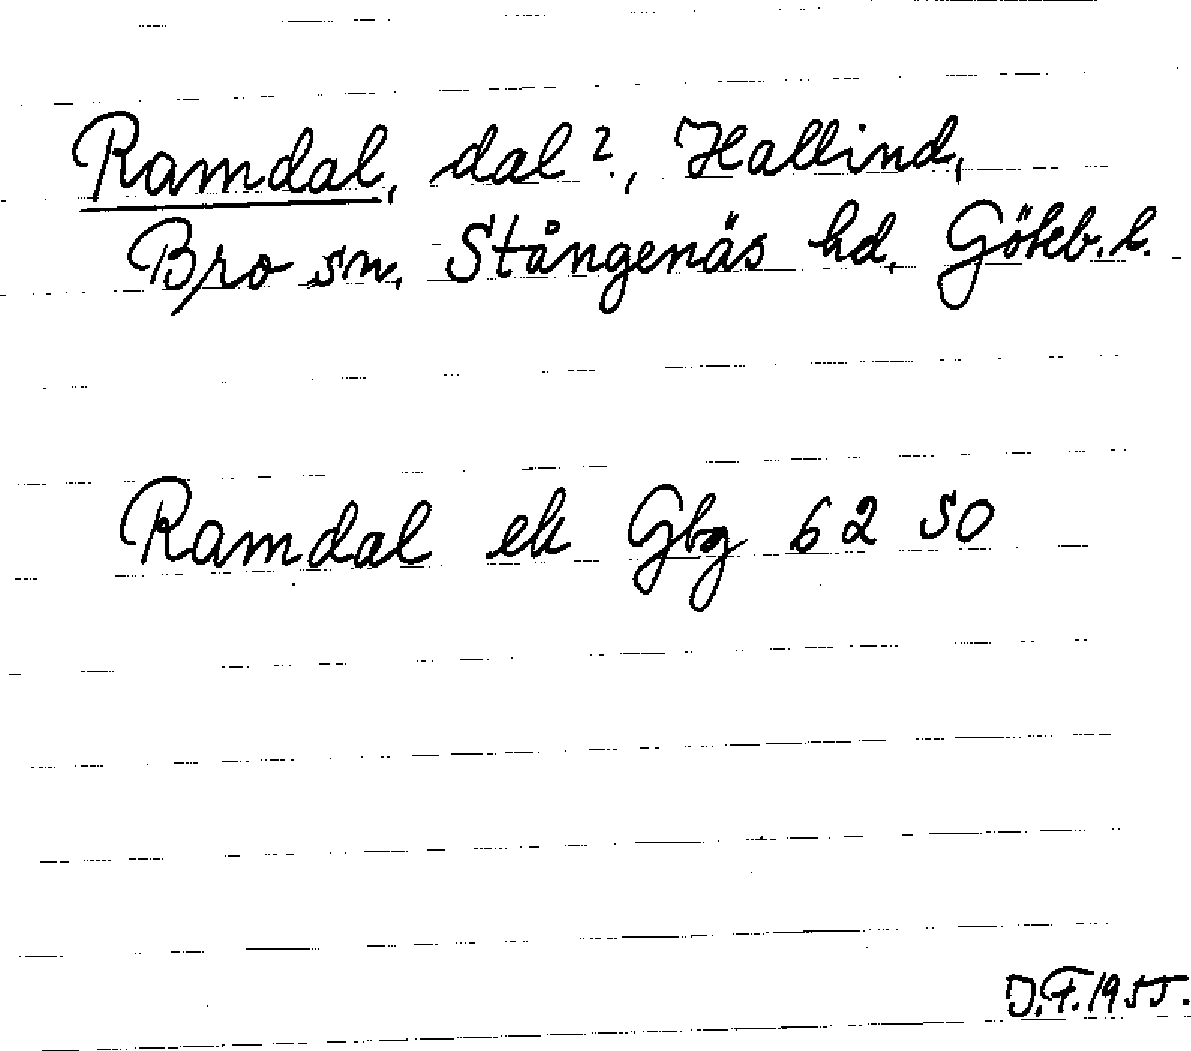 Ramdal, dal?, Hallind,
Bro sn. Stångenäs hd. Göteb. l.
Ramdal ek Gbg 62 50
J.F. 1955.